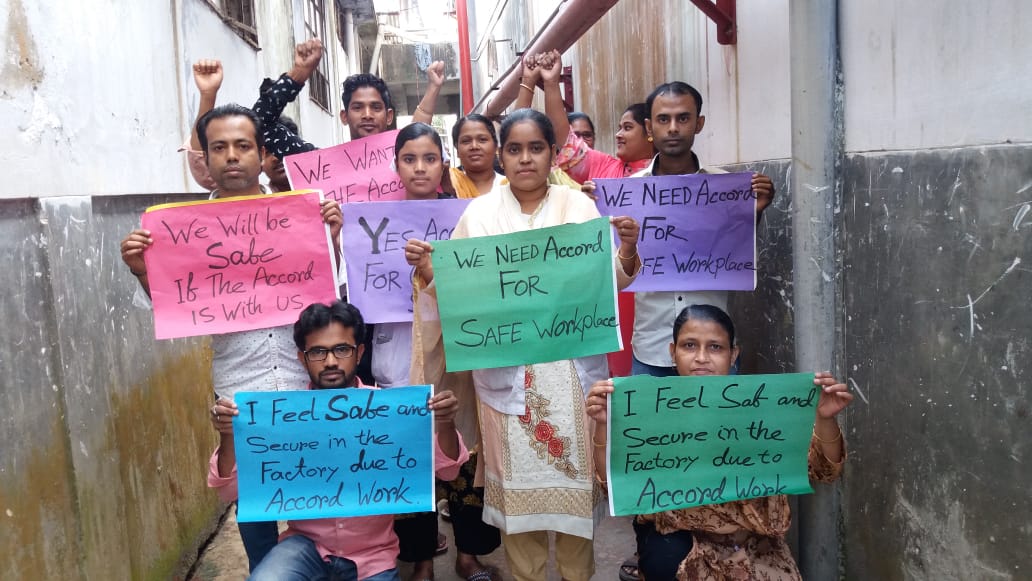 We Want
The Acco
We Will be
Sabe
If The Accord
Is With US
Yes Acc
For S
We Need Accord
For
Safe Workplace
We Need Accord
For
FE Workplace
I Feel Sabe and
Secure in the
Factory due to
Accord Work.
I Feel Saf and
Secure in the
Factory due to
Accord Work